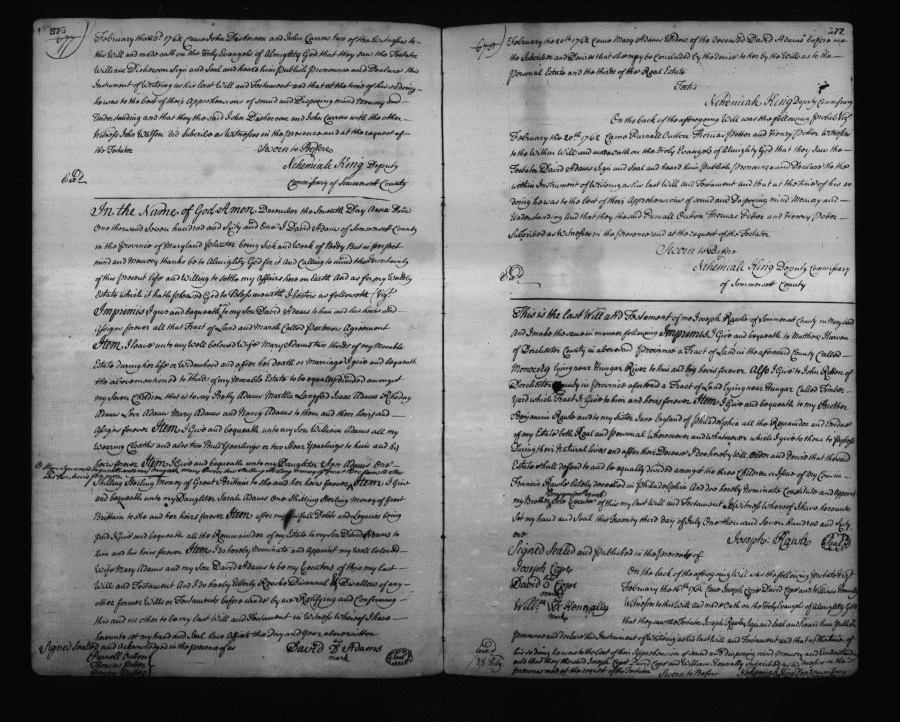 376
677
February the 20th 1762 Came John Disheroon and John Carsow two of the Witnesses to
the Will and made oath on the Holy Evangels of Almighty God that they saw the Testator
William Disheroon Sign and Seal and heard him Publish Pronounce and Declare this
Instrument of Writeing as his last Will and Testament and that at the time of his so doing
he was to the best of their Apprehensions of sound and Disposing mind Memory and
Understanding and that they the said John Disheroon and John Carsow with the other
Witness John Watson did Subscribe as Witnesses in the presence and at the request of
the Testator Sworn to Before
Nehemiah King Deputy
Commissary of Sommersett County
In the Name of God Amen December the Seventh Day Anno Domi
One thousand Seven hundred and Sixty and One I David Adams of Sommersett County
in the province of Maryland planter being Sick and Weak of Body But in perfect
mind and Memory thanks be to Almighty God for it and Calling to mind the uncertainty
of this present life and Willing to settle my Affairs here on Earth And as for my Worldly
Estate which it hath pleased God to Bless me with I bestow as followeth Vizt
Imprimis I give and bequeath to my Son David Adams to him and his heirs and
Assigns forever all that Tract of Land and Marsh Called Partners Agreement
Item I leave unto my Well beloved Wife Mary Adams two thirds of my Movable
Estate during her life or Widowhood and after her death or Marriage I give and bequeath
the abovementioned to thirds of my Movable Estate to be equally divided amongst
my Seven Children that is to say Betty Adams Martha Langford Isaac Adams
Adams Adams Mary Adams and Nancy Adams to them and their heirs and
Assigns forever Item I Give and bequeath unto my Son William Adams all my
Wearing Cloaths and also two Yearlings or two Yearlings to him and his
heirs forever Item I Give and bequeath unto my Daughter Ann Adams One
Shilling Sterling Money of Great Brittain to she and her heirs forever Item I Give
and bequeath unto my Daughter Sarah Adams One Shilling Sterling Money of Great
Brittain to she and her heirs forever Item after my lawfull Debts and Legacies being
paid I give and bequeath all the Remainder of my Estate to my Son David Adams to
him and his heirs forever Item I do hereby Nominate and Appoint my well beloved
Wife Mary Adams and my Son David Adams to be my Executors of this my last
Will and Testament And I do hereby Utterly Revoke Disannul & Disallow of any
other former Wills or Testaments before made by me Ratifying and Confirming
this and no other to be my last Will and Testament in Witness whereof I have
hereunto set my hand and Seal this the Day and Year above written
Signed Sealed and Acknowledged in the presence of us David Adams
mark
Seal
Purnell Outten
Thomas Potter
Henry Potter
377
678
February the 20th 1762 Came Mary Adams Widow of the deceased David Adams before me
the Subscriber and that she to be Concluded by the devise to her by the Will as to the
personal Estate and the thirds of the Real Estate
Teste
Nehemiah King Deputy Commissary
On the back of the aforegoing Will was the following Vizt
February the 20th 1762 Came Purnall Outten Thomas Potter and Henry Potter Witnesses
to the Within Will and made oath on the Holy Evangels of Almighty God that they Saw the
Testator David Adams Sign and Seal and heard him Publish Pronounce and Declare the
within Instrument of Writeing as his last Will and Testament and that at the time of his so
doing he was to the best of their Apprehensions of sound and disposing mind Memory and
Understanding and that they the said Purnall Outten Thomas Potter and Henry Potter
Subscribed as Witnesses in the presence and at the request of the Testator
Sworn to Before
Nehemiah King Deputy Commissary
of Sommersett County
This is the last Will and Testament of me Joseph Rawle of Sommersett County in Maryland
And I make the same in manner following Imprimis I Give and bequeath to Matthew
of Dorchester County in abovesaid Province a Tract of Land in the aforesaid County Called
lying near Hungar River to him and his heirs forever Also I Give to John
Dorchester County in province aforesaid a Tract of Land lying near Hungar Called Timber
Yard which Tract I Give to him and heirs forever Item I Give and bequeath to my Brother
Benjamin Rawle and to my Sister Jane England of Philadelphia all the Remainder and residue
of my Estate both Real and personal Wheresoever and Whatsoever which I give to them to possess
During their Natural lives and after their Decease I do hereby Will order and Devise that the said
Estate shall descend to and be equally divided amongst the three Children of my Cousin
Francis Rawle lately deceased in Philadelphia And I do hereby Nominate Constitute and Appoint
my Brother Benjamin Rawle Sole Executor of this my last Will and Testament In Witness Whereof I have hereunto
Set my hand and Seal this Twenty third Day of July One thousand Seven hundred and Sixty
one
Joseph Rawle
Seal
Signed Sealed and Published in the presents of
Joseph Cope
David Cope
mark
Willm Kennially
mark
On the back of the aforegoing Will was the following Vizt
February the 1762 Came Joseph Cope David Cope and William
Witnesses to this Will and made Oath on the Holy Evangels of Almighty God
that they saw the Testator Joseph Rawle Sign and Seal and heard him Publish
pronounce and declare this Instrument of Writeing as his last Will and Testament and that at the time of
his so doing he was to the best of their Apprehension of sound and disposing mind Memory and Understanding
and that they the said Joseph Cope David Cope and William Subscribed as Witnesses in the
presence and at the request of the Testator Sworn to Before Nehemiah King Dep Commissary